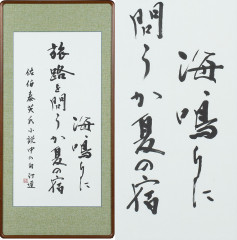 海鳴りに
旅路を問うか夏の宿
佐伯泰英氏小説中の自作選
海鳴りに
問うか夏の宿